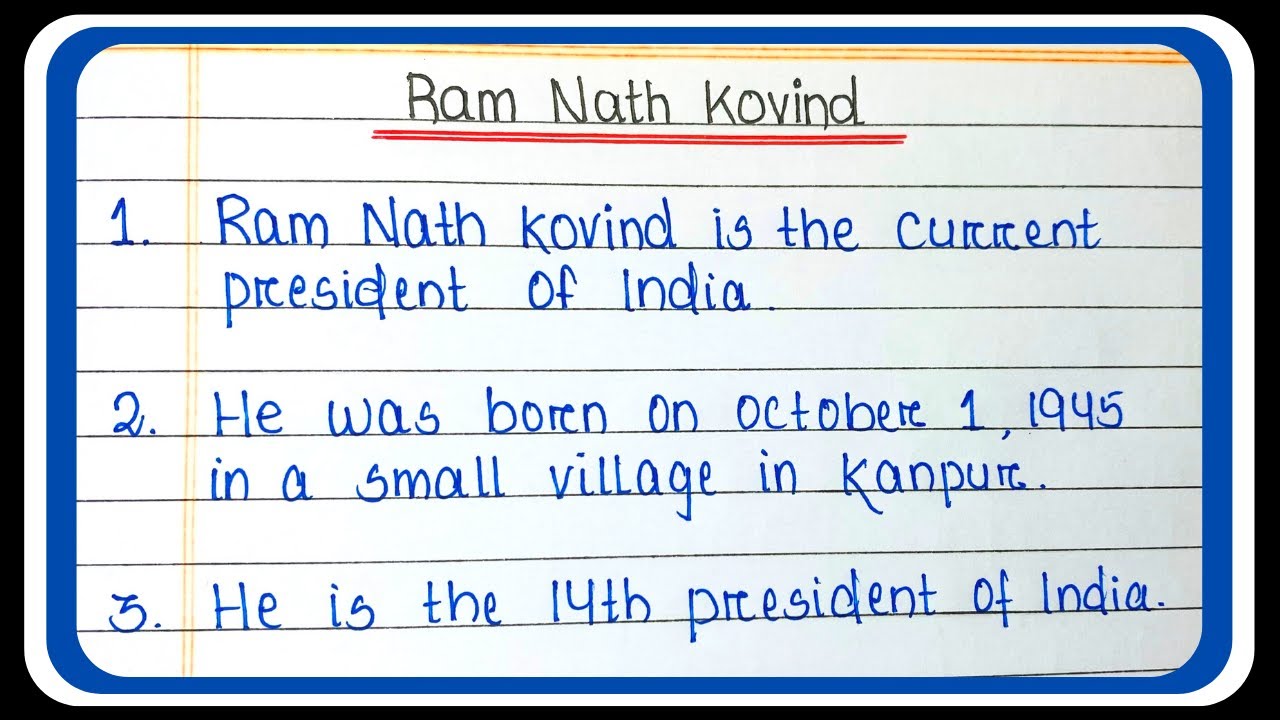 Ram Nath Kovind
1. Ram Nath Kovind is the current
president of India.
2. He was born on october 1, 1945
in a small village in Kanpur.
3. He is the 14th president of India.